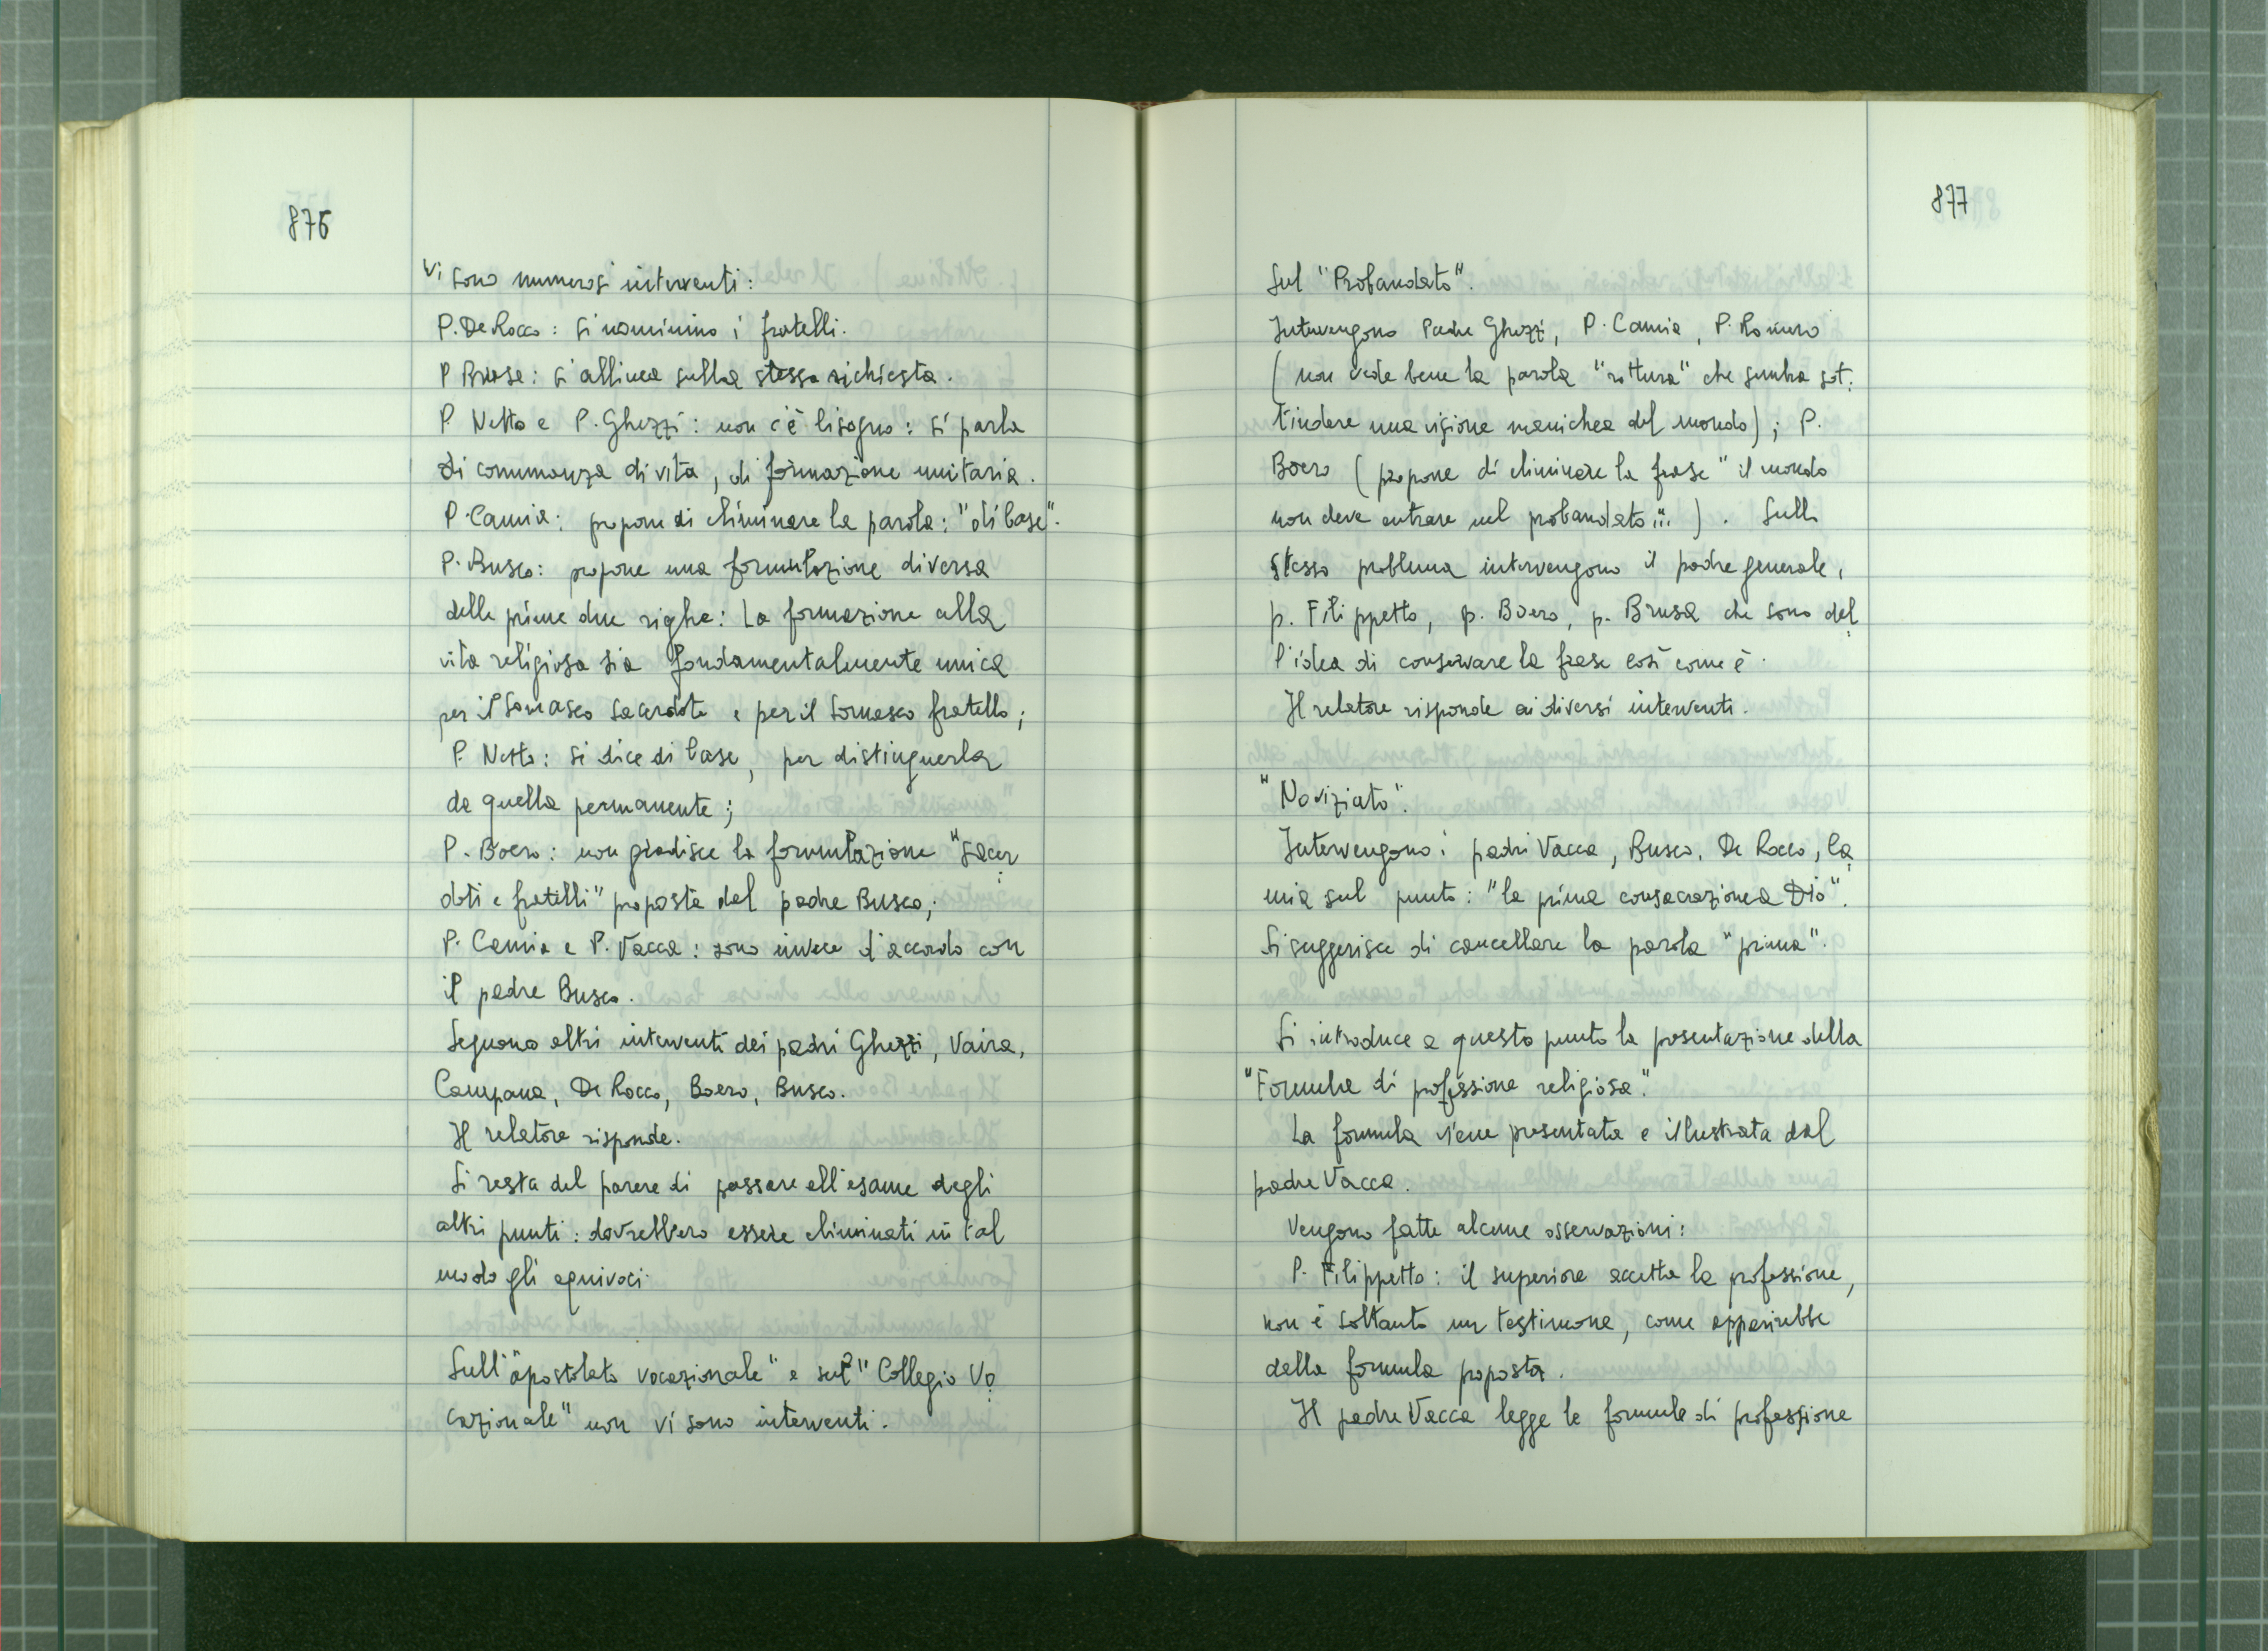 876
Vi sono numerosi interventi:
P. De Rocco: si nominino i fratelli.
P Brusa: si allinea sulla stessa richiesta.
P Netto e P. Ghezzi: non c'è bisogno: si parla
di comunanza di vita, di formazione unitaria.
P. Camia: propone di eliminare la parola: "di base".
P. Busco: propone una formulazione diversa
delle prime due righe: La formazione alla
vita religiosa sia fondamentalmente unica
per il Somasco Sacerdote e per il Somasco fratello;
P. Netto: si dice di base, per distinguerla
da quella permanente;
P. Boero: non gradisce la formulazione "Sacer
doti e fratelli" proposta dal padre Busco;
P. Camia e P. Vacca: sono invece d'accordo con
il padre Busco.
Seguono altri interventi dei padri Ghezzi, Vaira,
Campana, De Rocco, Boero, Busco.
Il relatore risponde.
Si resta del parere di passare all'esame degli
altri punti: dovrebbero essere eliminati in tal
modo gli equivoci.
Sull'"apostolato vocazionale" e sul "Collegio Vo
cazionale" non vi sono interventi.
877
Sul "Probandato".
Intervengono Padre Ghezzi, P. Camia, P. Romero
(non vede bene la parola "rottura" che sembra sot
tindere una visione manichea del mondo); P.
Boero (propone di eliminare la frase "il mondo
non deve entrare nel probandato..."). Sullo
stesso problema intervengono il padre generale,
p. Filippetto, p. Boero, p. Brusa che sono del
l'idea di conservare la frase così come è.
Il relatore risponde ai diversi interventi.
"Noviziato".
Intervengono i padri Vacca, Busco, De Rocco, Ca
mia sul punto: "la prima consacrazione a Dio".
Si suggerisce di cancellare la parola "prima".
Si introduce a questo punto la presentazione della
"Formula di professione religiosa".
La formula viene presentata e illustrata dal
padre Vacca.
Vengono fatte alcune osservazioni:
P. Filippetto: il superiore accetta la professione,
non è soltanto un testimone, come apparirebbe
dalla formula proposta.
Il padre Vacca legge le formule di professione